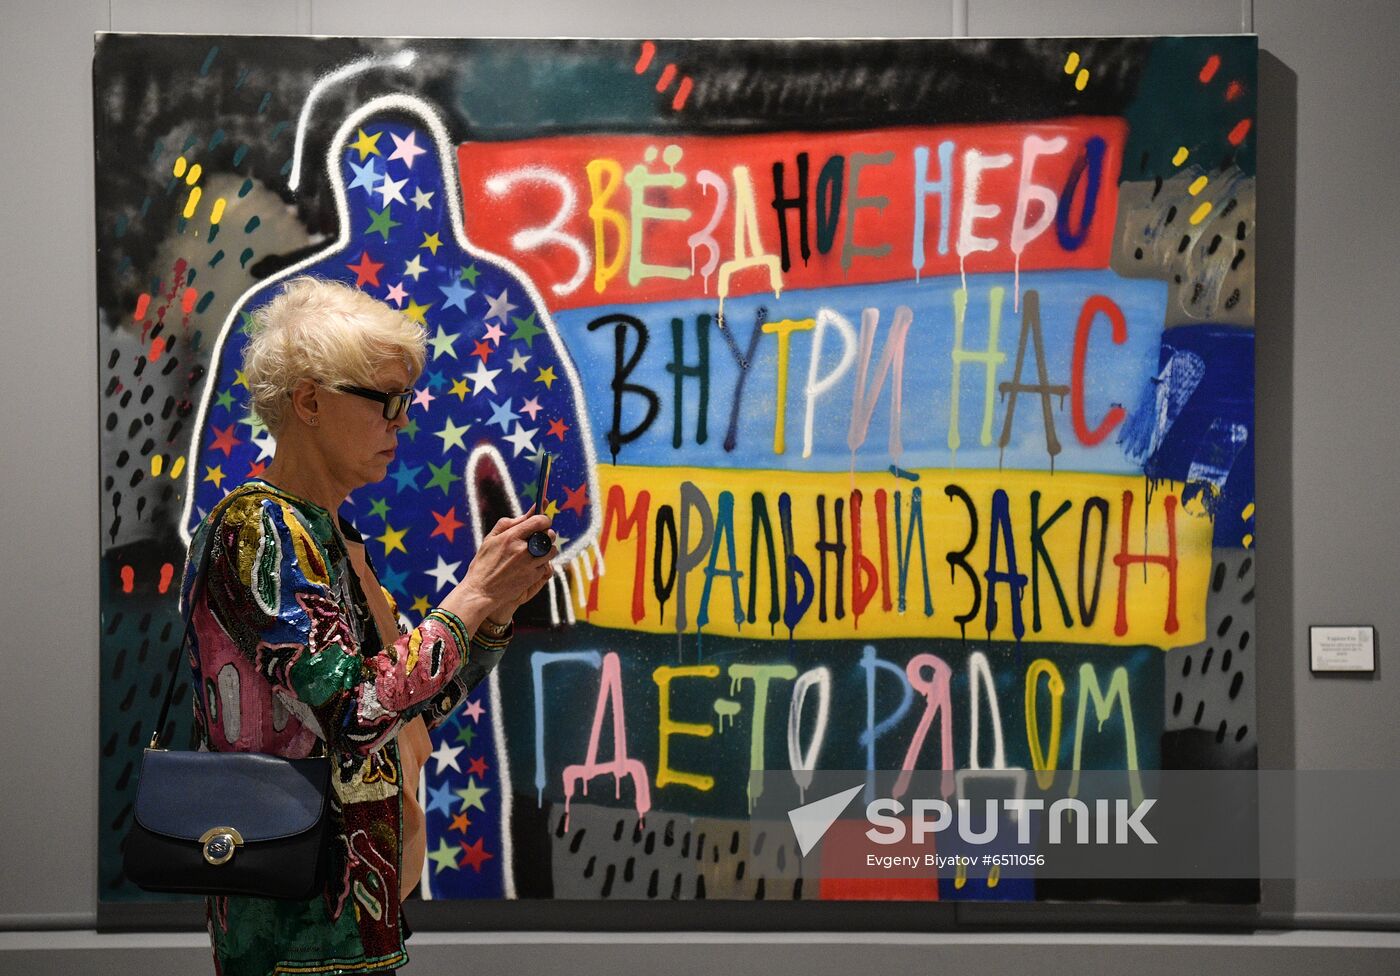 ЗВЁЗДНОЕ НЕБО
ВНУТРИ НАС
МОРАЛЬНЫЙ ЗАКОН
ГДЕ-ТО РЯДОМ
SPUTNIK
Evgeny Biyatov #6511056